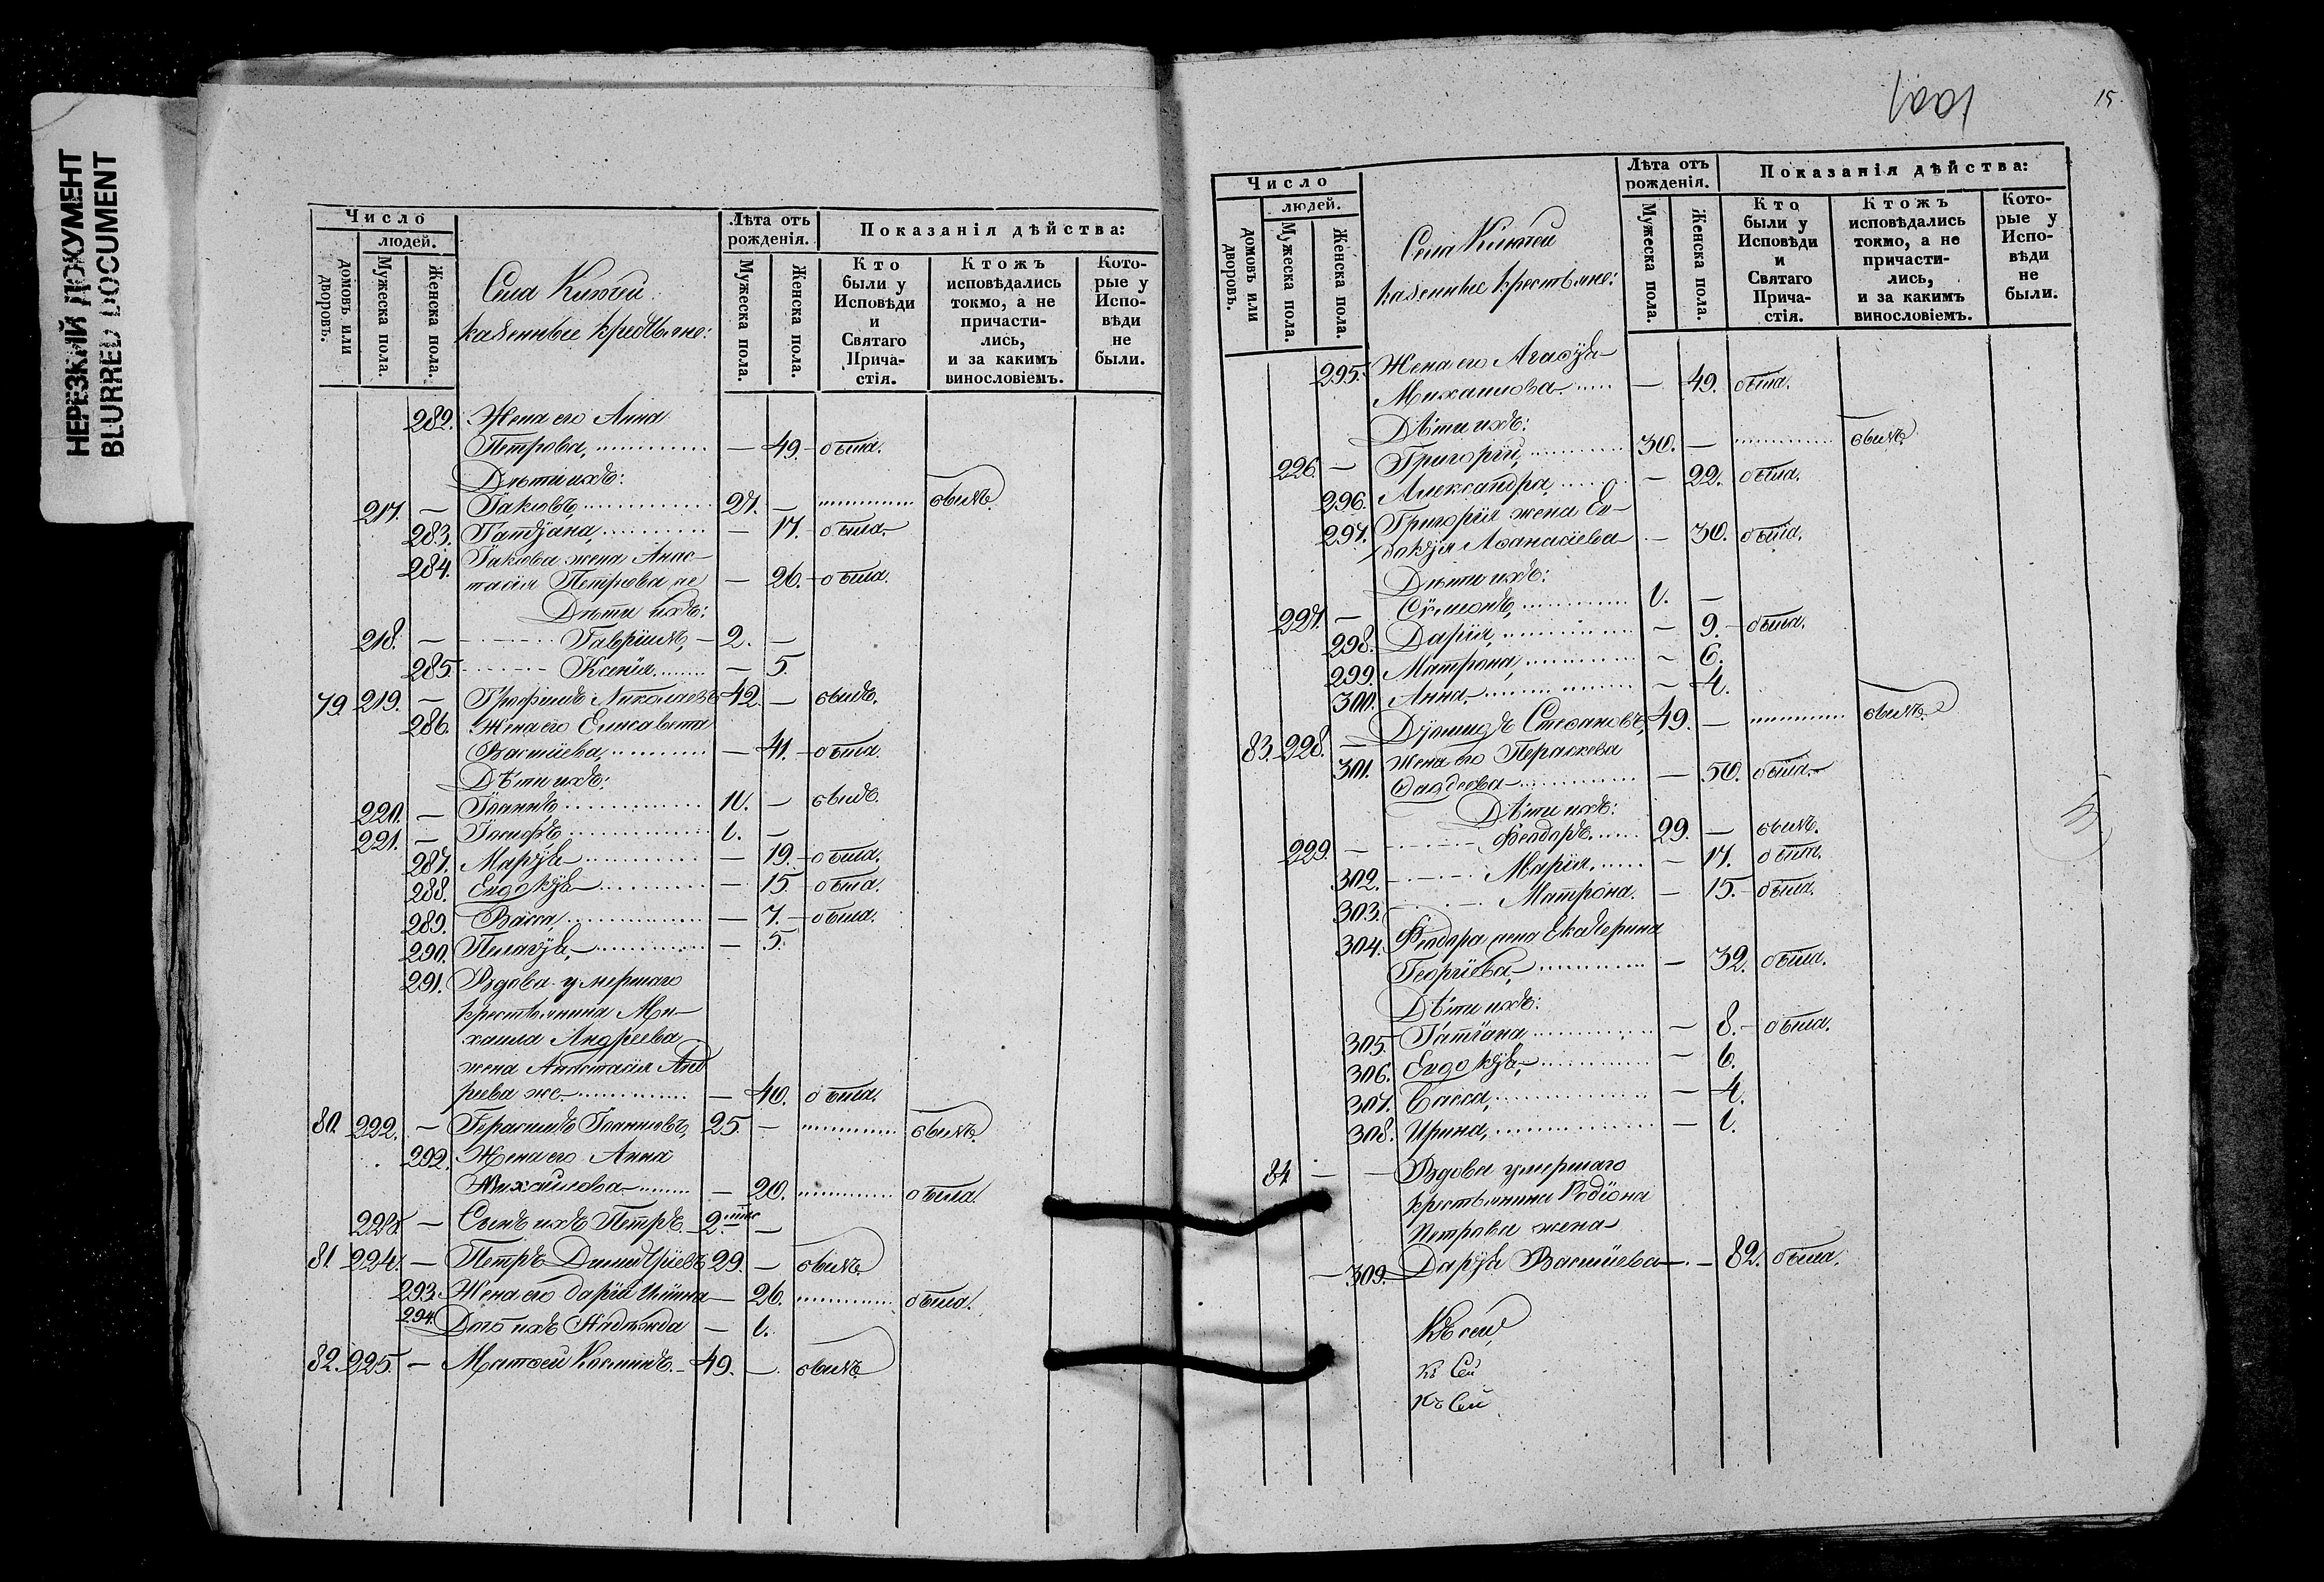 НЕРЕЗКИЙ ДОКУМЕНТ
BLURRED DOCUMENT
Число
людей.
домовъ или дворовъ.
Мужеска пола.
Женска пола.
Села
казенные крестьяне:
Лѣта отъ рожденія.
Мужеска пола.
Женска пола.
Показанія дѣйства:
Кто были у Исповѣди и Святаго Прича-стія.
Ктожъ исповѣдались токмо, а не причасти-лись, и за какимъ винословіемъ.
Кото-рые у Испо-вѣди не были.
282. Жена его Анна
Петрова, — 49. — была.
Дѣти ихъ:
217. — Іаковъ, 27. — былъ.
283. Татіана, — 17. — была.
284. Іакова жена Анас-
тасія Петрова же — 26. — была.
Дѣти ихъ:
218. — Гавріилъ, — 2. —
285. Ксенія — 5.
79. 219. — Трофимъ Николаевъ 42. — былъ.
286. Жена его Елисавета
Василіева, — 41. — была.
Дѣти ихъ:
220. — Іоаннъ 11. — былъ.
221. — Іосифъ 1. —
287. Марѳа — 19. — была.
288. Евдокія — 15. — была.
289. Васса, — 7. — была.
290. Пелагія, — 5.
291. Вдова умершаго
крестьянина Ми-
хаила Андреева
жена Анастасія Анд
реева же — 40. была.
80. 222. — Герасимъ Іоанновъ, 25. — былъ.
292. Жена его Анна
Михайлова — 20. была.
223. — Сынъ ихъ Петръ. 2. —
81. 224. — Петръ Димитріевъ 29. — былъ.
293. Жена его Дарія — 26. была.
294. Дочь ихъ Надежда — 1.
82. 225. — Матѳей Косминъ. 49. — былъ.
1001
15.
Число
людей.
домовъ или дворовъ.
Мужеска пола.
Женска пола.
Села
казенные крестьяне:
Лѣта отъ рожденія.
Мужеска пола.
Женска пола.
Показанія дѣйства:
Кто были у Исповѣди и Святаго Прича-стія.
Ктожъ исповѣдались токмо, а не причасти-лись, и за какимъ винословіемъ.
Кото-рые у Испо-вѣди не были.
295. Жена его Агаѳія
Михаилова — 49. была.
Дѣти ихъ:
226. — Григорій, 30. — былъ.
296. Александра, — 22. была.
297. Григорія жена Ев-
докія Аѳанасіева — 30. была.
Дѣти ихъ:
227. — Сѵмеонъ, 1. —
298. Дарія, — 9. — была.
299. Матрона, — 6.
300. Анна. — 4.
83. 228. — Стефановъ, 49. — былъ.
301. Жена его Параскева
Фаддеева — 50. была.
Дѣти ихъ:
229. — Ѳеодоръ. 29. — былъ.
302. Марія. — 17. была.
303. Матрона. — 15. — была.
304. Ѳеодора жена Екатерина
Георгіева, — 32. была.
Дѣти ихъ:
305. Татіана — 8. — была.
306. Евдокія, — 6.
307. Васса, — 4.
308. Ирина, — 1.
84. — — Вдова умершаго
крестьянина Родіона
Петрова жена
— 309. Дарія Василіева — 82. была.
Къ сей
Къ Сей
Къ Сей